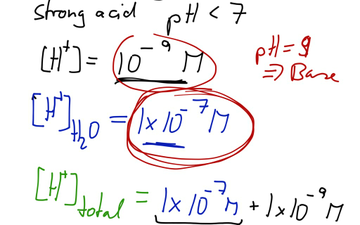 strong acid pH < 7
[H⁺] = 10⁻⁹ M
pH = 9
⇒ Base
[H⁺]H₂O = 1x10⁻⁷ M
[H⁺]total = 1x10⁻⁷ M + 1x10⁻⁹ M